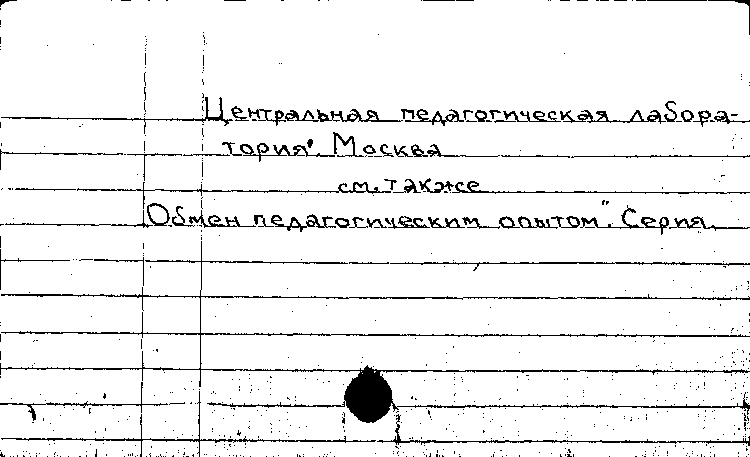 Центральная педагогическая лабора-
тория. Москва
см. также
"Обмен педагогическим опытом". Серия.